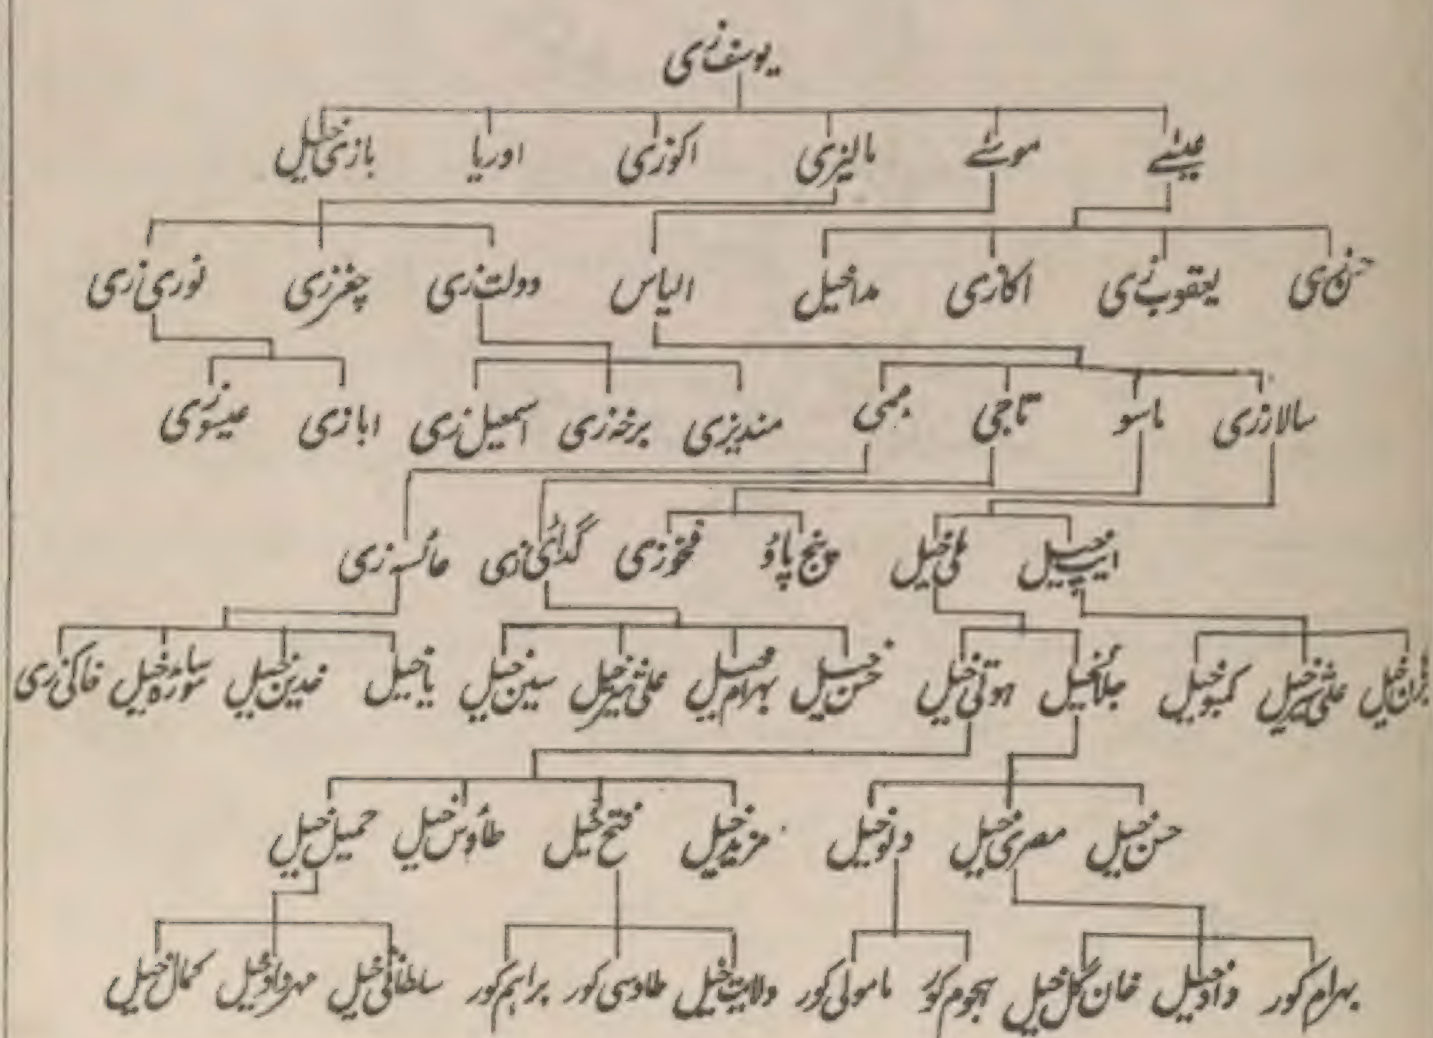 یوسف زی
عیسے موسے مالیزی اکوزی اوریا بازی خیل
حسن زی یعقوب زی اکازی مداخیل الیاس دولت زی چغرزی نوری زی
سالارزی ماسو تاجی ممی مندیزی برخہ زی اسمعیل زی ابازی عیسوزی
ایپ خیل ملی خیل پنج پاؤ فخوزی گدائی زی عائسہ زی
علی شیر خیل کمبو خیل ہوتی خیل حسن خیل بہرام خیل علی شیر خیل سین خیل یا خیل خدین خیل خاکی زی
حسن خیل مصری خیل دنو خیل مزید خیل فتح خیل طاؤس خیل حمیل خیل
بہرام کور داد خیل خان گل خیل ہجوم کور مامولی کور ولایت خیل طاوسی کور براہم کور سلطانی خیل مہرداد خیل کمال خیل